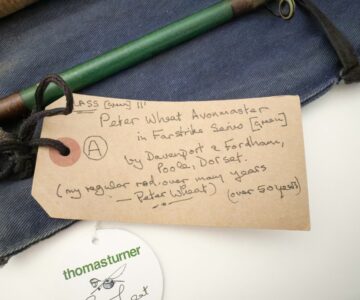 GLASS [GREEN] 11'
Peter Wheat Avonmaster
in Farstrike Series [GREEN]
by Davenport & Fordham,
Poole, Dorset.
(my regular rod over many years
— Peter Wheat) (over 50 years)
A
thomasturner